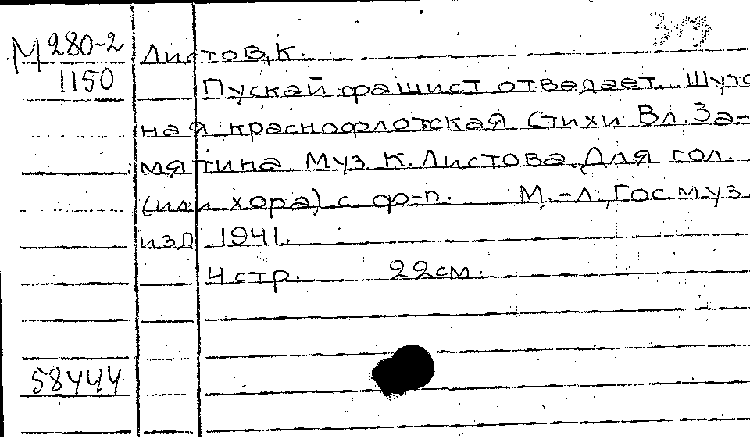 М 280-2
1150
Листов, К.
Пускай фашист отведает. Шуточ
ная краснофлотская Стихи Вл. За-
мятина Муз. К. Листова. Для гол.
(или хора) с ф-п. М.-Л., Гос. муз.
изд 1941.
4 стр. 22 см.
58444